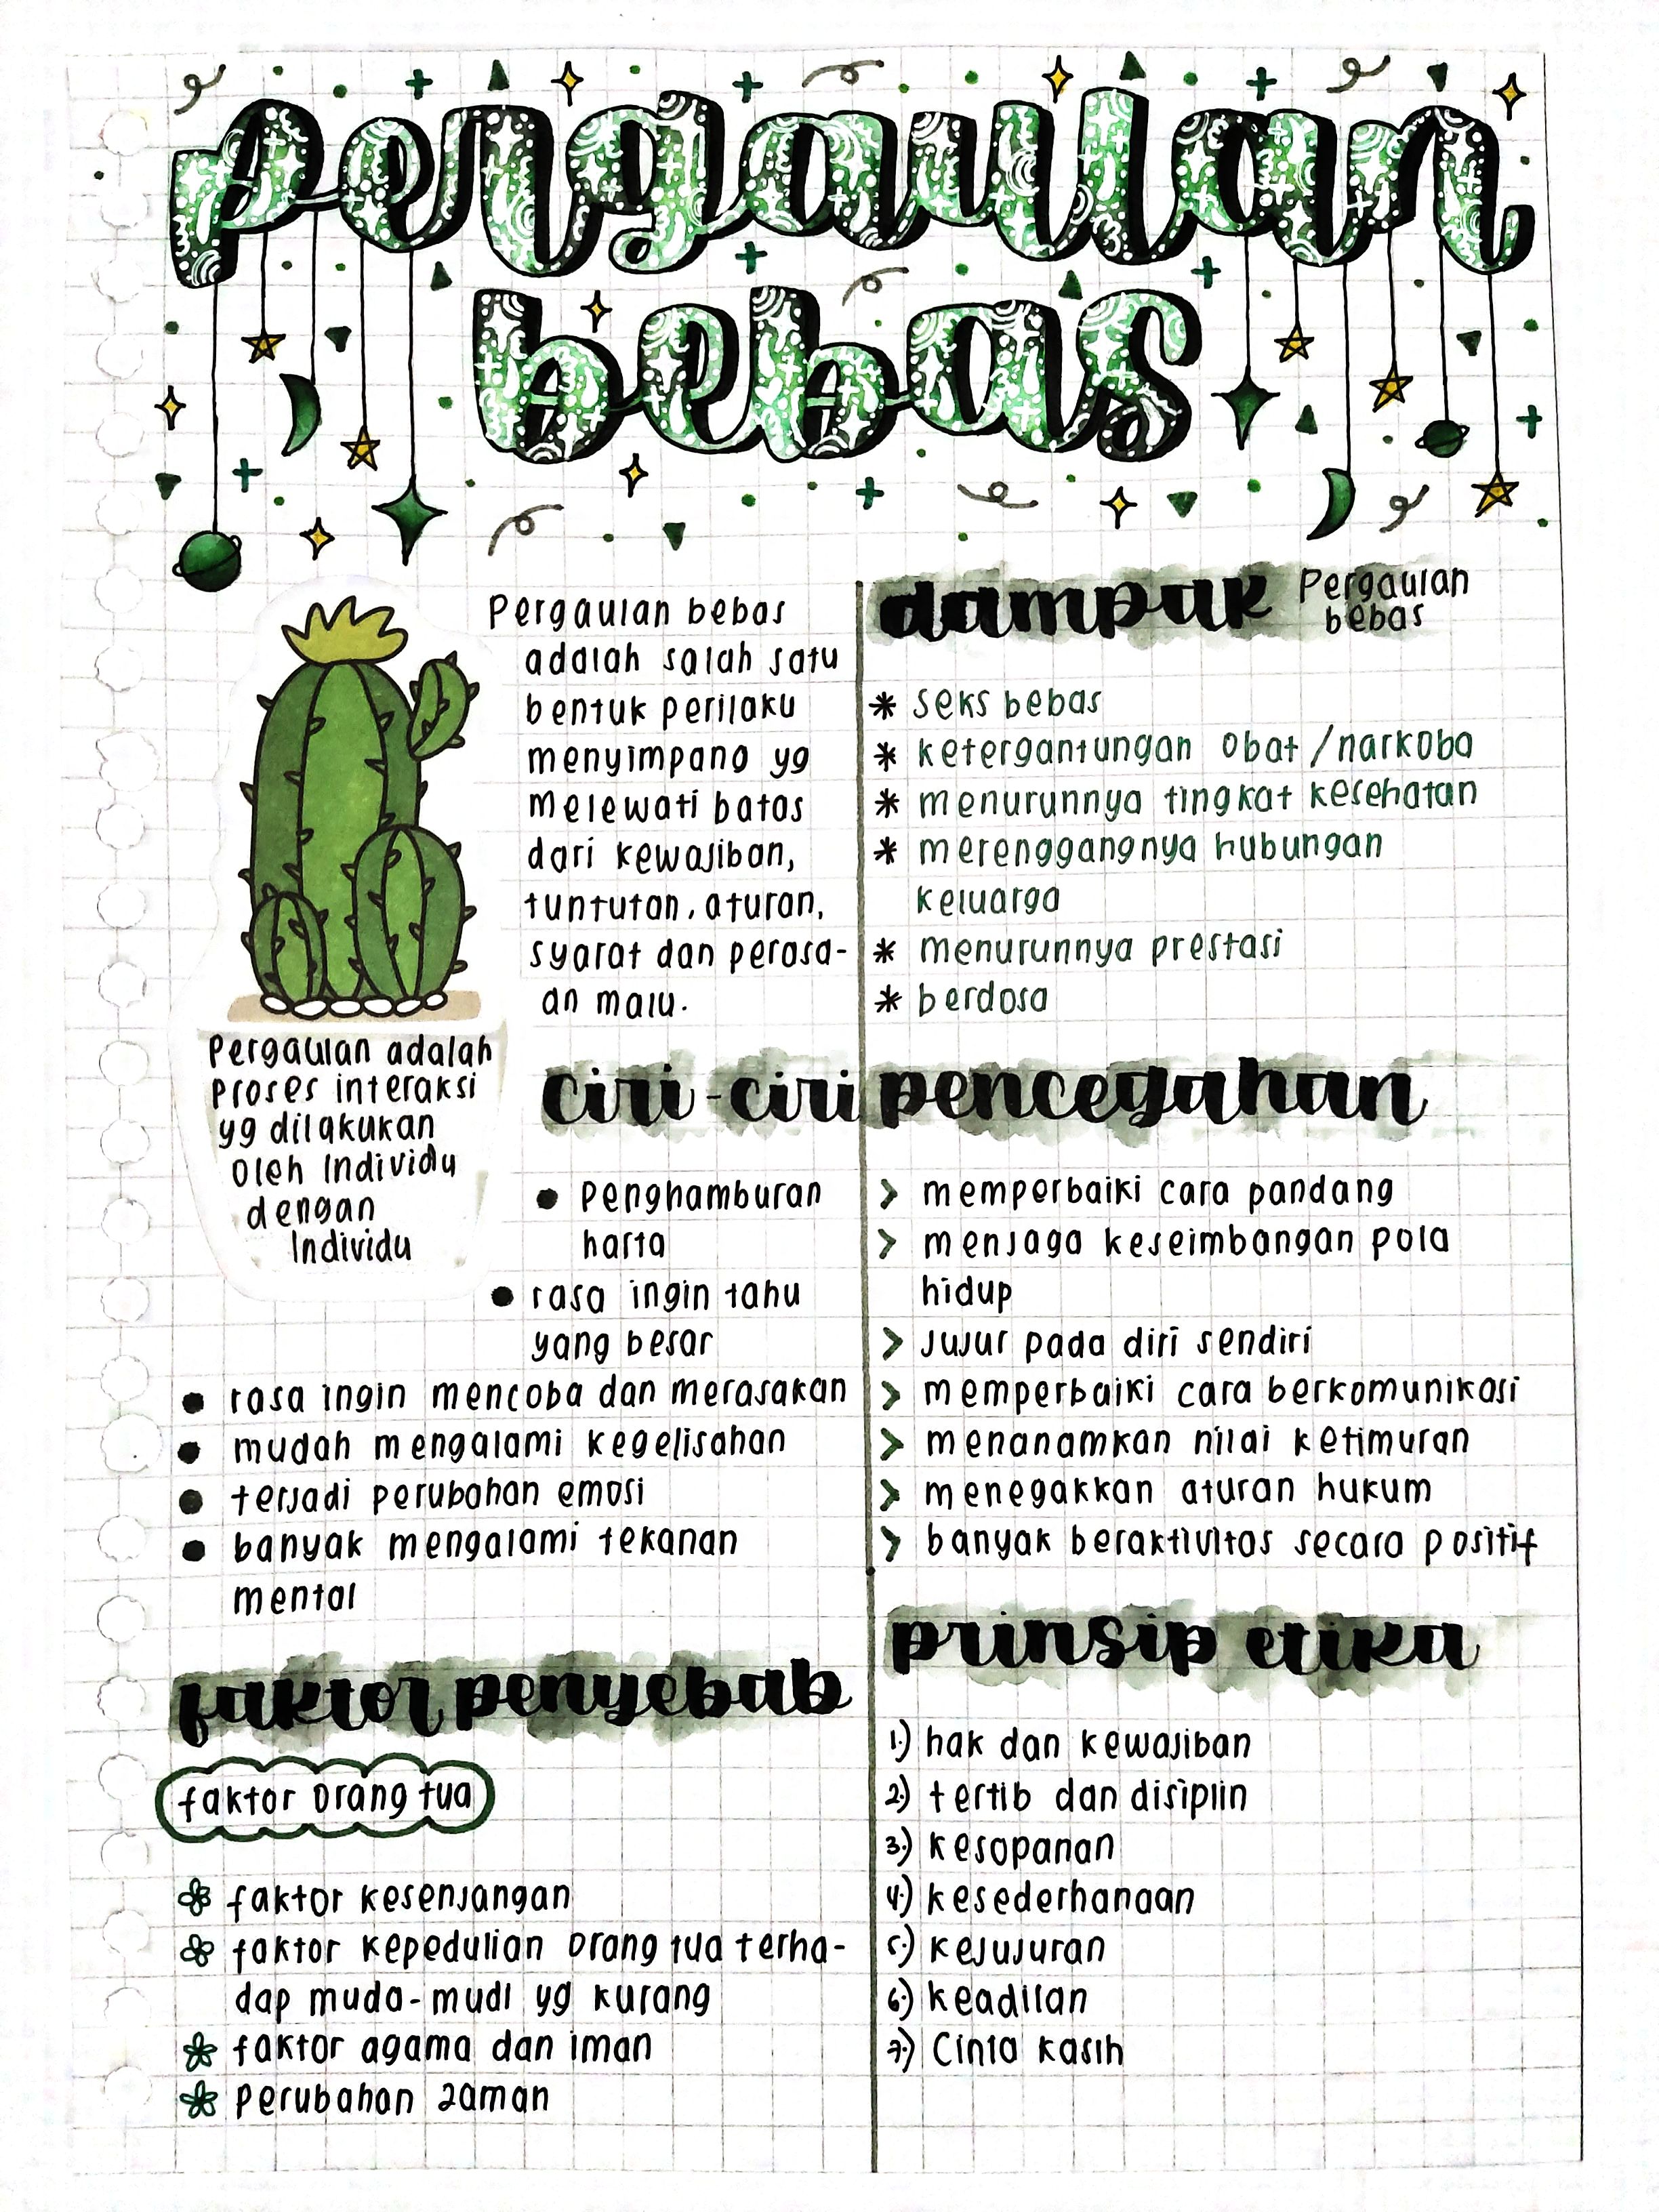 pergaulan
bebas
Pergaulan bebas
adalah salah satu
bentuk perilaku
menyimpang yg
melewati batas
dari kewajiban,
tuntutan, aturan,
syarat dan perasa-
an malu.
Pergaulan adalah
proses interaksi
yg dilakukan
oleh Individu
dengan
Individu
ciri-ciri
• penghamburan
harta
• rasa ingin tahu
yang besar
• rasa ingin mencoba dan merasakan
• mudah mengalami kegelisahan
• terjadi perubahan emosi
• banyak mengalami tekanan
mental
faktor penyebab
faktor orang tua
faktor kesenjangan
faktor kepedulian orang tua terha-
dap muda-mudi yg kurang
faktor agama dan iman
perubahan zaman
dampak Pergaulan
bebas
* seks bebas
* ketergantungan obat/narkoba
* menurunnya tingkat kesehatan
* merenggangnya hubungan
keluarga
* menurunnya prestasi
* berdosa
pencegahan
> memperbaiki cara pandang
> menjaga keseimbangan pola
hidup
> jujur pada diri sendiri
> memperbaiki cara berkomunikasi
> menanamkan nilai ketimuran
> menegakkan aturan hukum
> banyak beraktivitas secara positif
prinsip etika
1.) hak dan kewajiban
2.) tertib dan disiplin
3.) kesopanan
4.) kesederhanaan
5.) kejujuran
6.) keadilan
7.) Cinta kasih